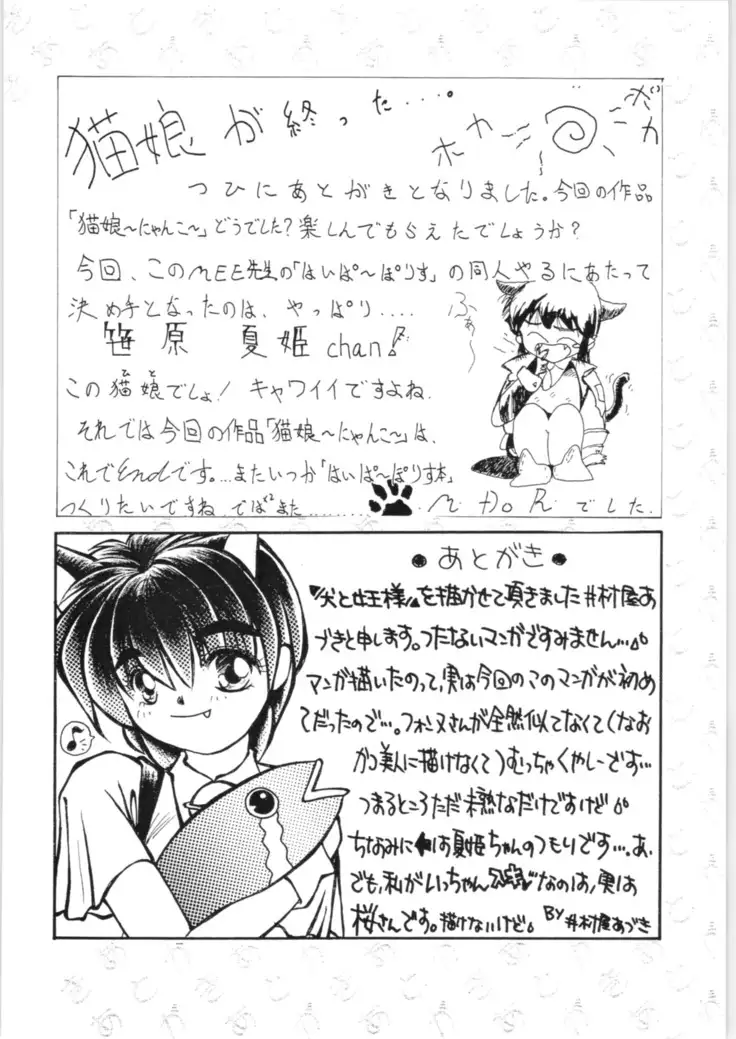 猫娘が終った....。
ホカ
ボカ
つひにあとがきとなりました。今回の作品
「猫娘〜にゃんこ〜」どうでした?楽しんでもらえたでしょうか?
今回、このMEE先生の「はいぱ〜ぽりす」の同人やるにあたって
決め手となったのは、やっぱり....
笹原 夏姫chan!
ふぁ〜
この猫娘でしょ!キャワイイですよね。
ひと
それでは今回の作品「猫娘〜にゃんこ〜」は、
これでEndです。...またいつか「はいぱ〜ぽりす本」
つくりたいですね。では²また.........
でした.
●あとがき●
『犬と女王様』を描かせて頂きました井村屋あ
づきと申します。つたないマンガですみません...。
マンガ描いたのって、実は今回のこのマンガが初め
てだったので...。フォンヌさんが全然似てなくて(なお
かつ美人に描けなくて)むっちゃくやしーです...
つまるところただ未熟なだけですけど。
ちなみに←は夏姫ちゃんのつもりです...。あ、
でも、私がいっちゃんなのは、実は
桜さんです。描けないけど。BY井村屋あづき